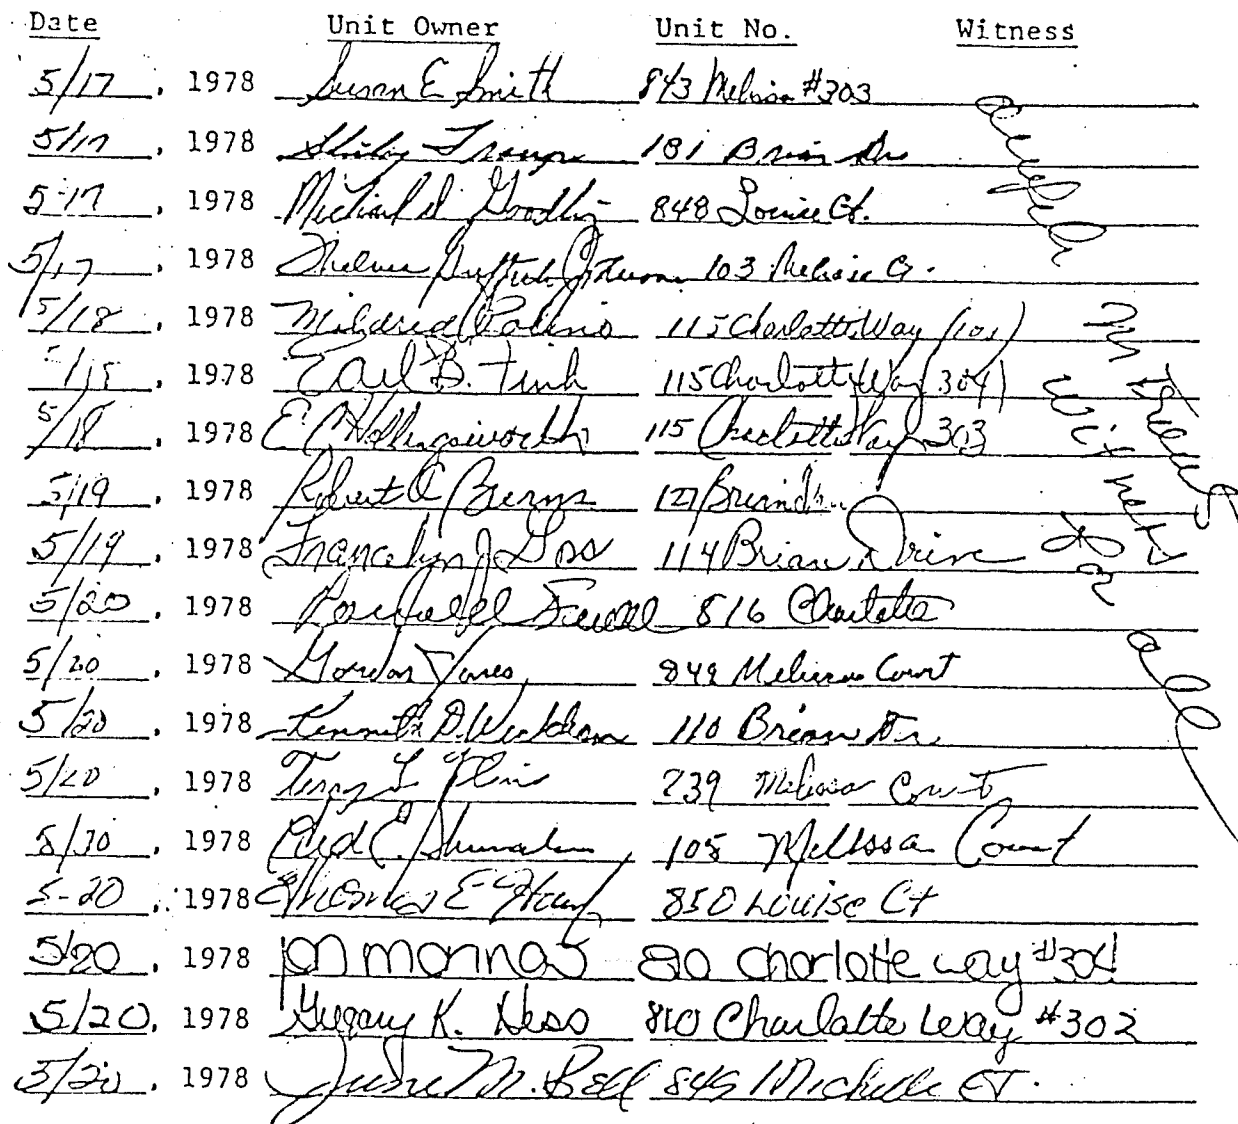 Date Unit Owner Unit No. Witness
5/17, 1978 Susan E Smith 843 Melissa #303
5/17, 1978 Shirley 181 Brian Dr
5-17, 1978 Michael D Goodling 848 Louise Ct.
5/17, 1978 103 Melissa Ct.
5/18, 1978 Mildred Palino 115 Charlotte Way (101)
1978 Earl B. Fink 115 Charlotte Way (304)
5/18, 1978 E C Hollingsworth 115 Charlotte Way 303
5/19, 1978 Robert A Burns 127 Brian Dr.
5/19, 1978 J Goss 114 Brian Drive
5/20, 1978 816 Charlotte
5/20, 1978 Gordon Jones 849 Melissa Court
5/20, 1978 Kenneth D. 110 Brian Dr.
5/20, 1978 Terry L 239 Melissa Court
5/30, 1978 E. 105 Melissa Court
5-20, 1978 Thomas E 850 Louise Ct
5/20, 1978 810 Charlotte way #304
5/20, 1978 Gregory K. Hess 810 Charlotte Way #302
5/20, 1978 June M. Bell 845 Michelle CT.
witness
for
all